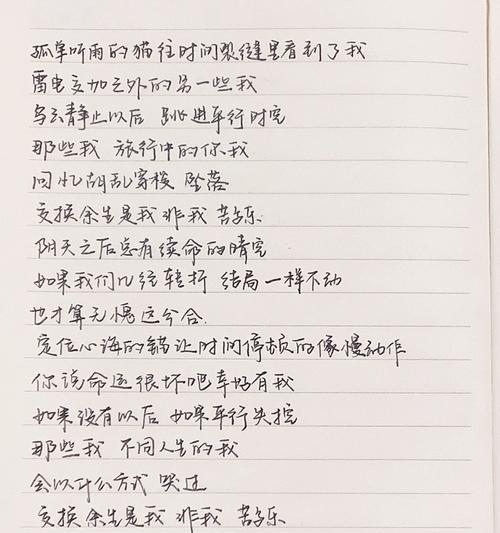 孤单听雨的猫往时间裂缝里看到了我
雷电交加之外的另一些我
乌云静止以后 跳进平行时空
那些我 旅行中的你我
回忆胡乱穿梭 坠落
交换余生是我非我 苦与乐
阴天之后总有续命的晴空
如果我们几经转折 结局一样不动
也才算无愧这分合
定位心海的锚让时间停顿的像慢动作
你说命运很坏吧幸好有我
如果没有以后 如果平行失控
那些我 不同人生的我
会以什么方式 哭过
交换余生是我 非我 苦与乐